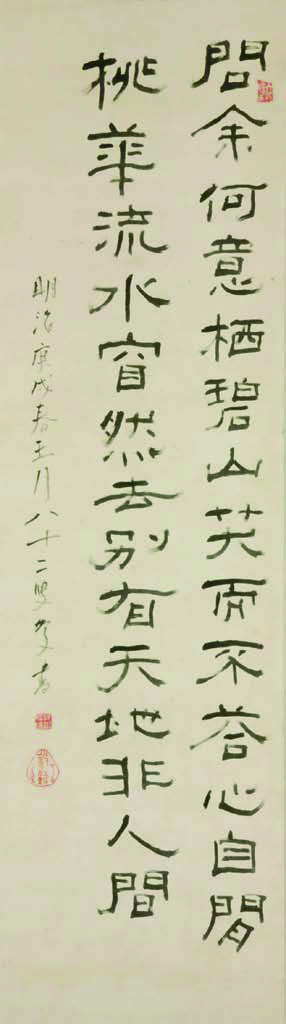 問余何意栖碧山笑而不荅心自閒
桃華流水窅然去別有天地非人間
明治庚戌春王月八十二叟書